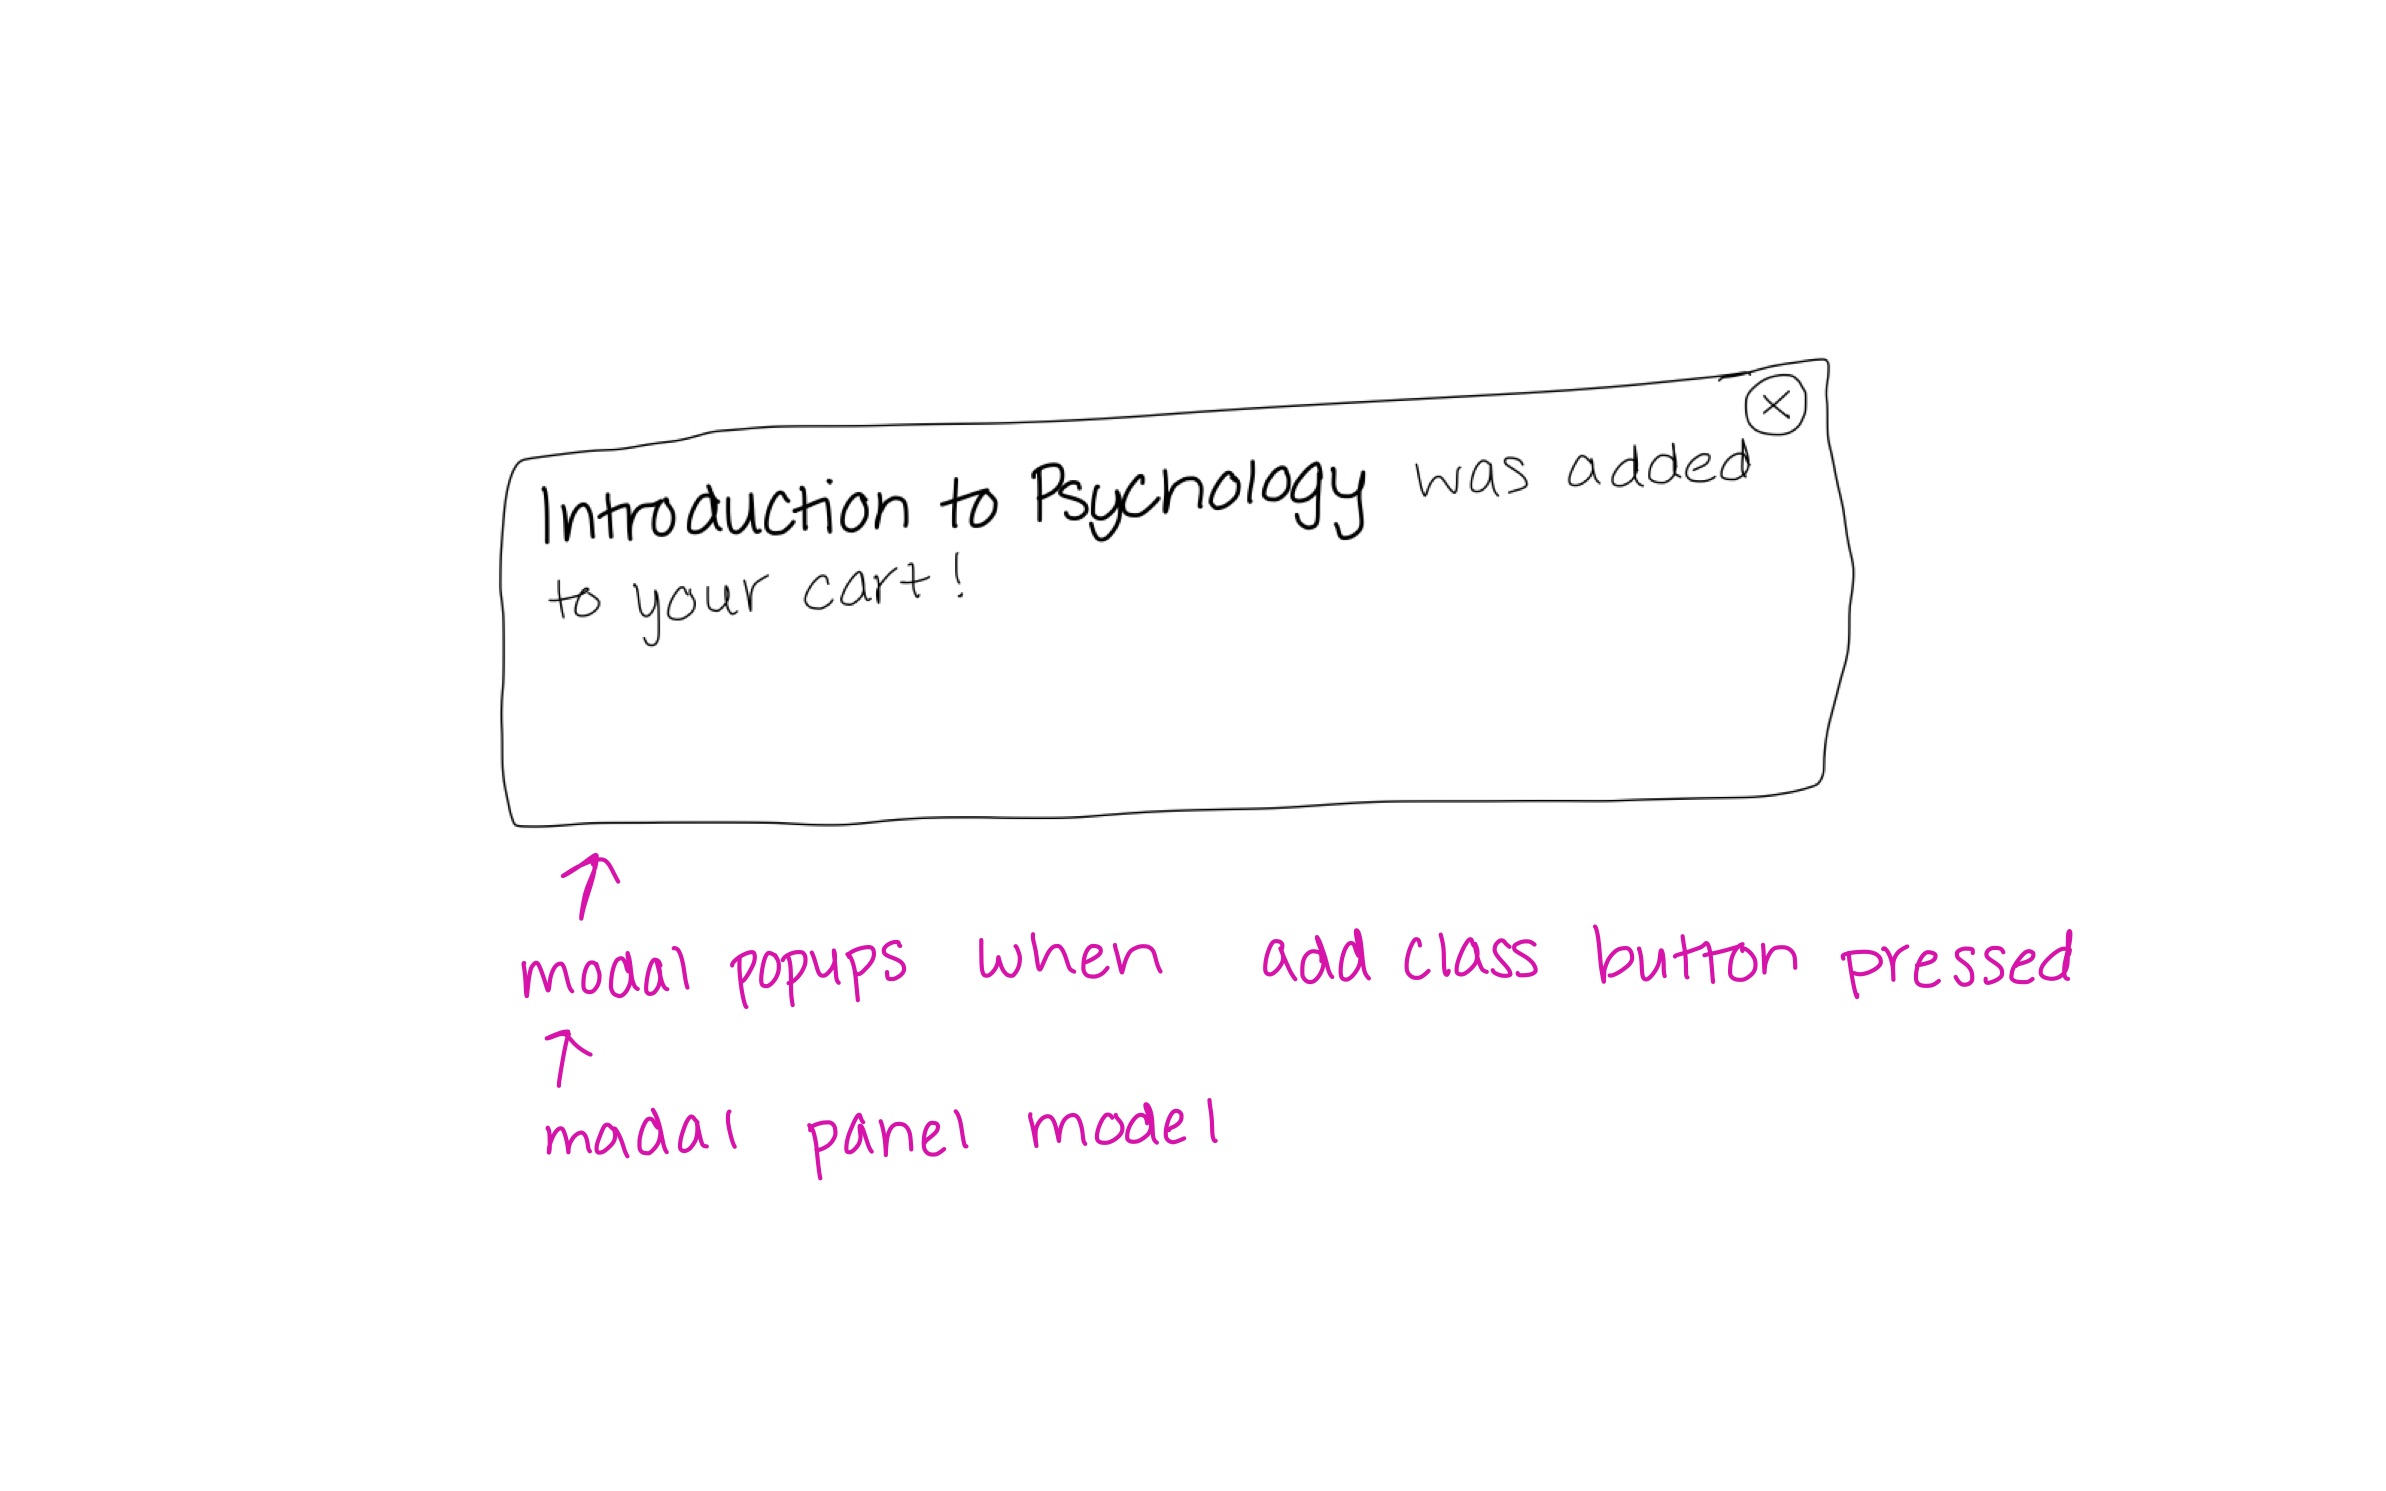 Introduction to Psychology was added
to your cart!
modal popups when add class button pressed
modal panel model